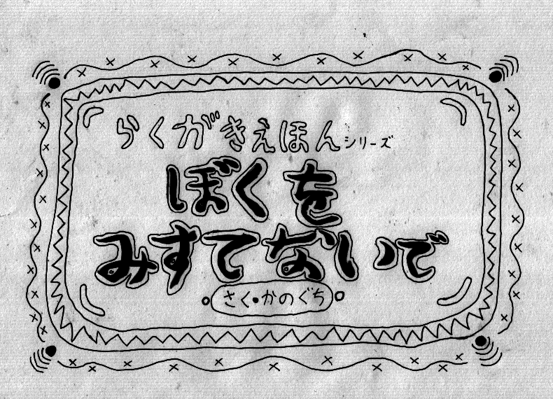 らくがきえほんシリーズ
ぼくを
みすてないで
さく•かのぐち